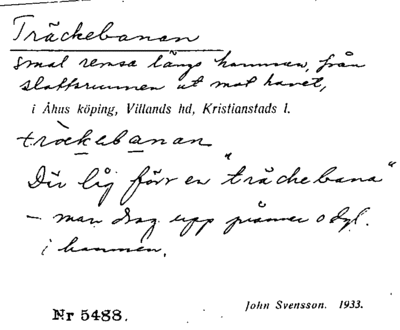 Träckebanan
smal remsa längs hamnen, från
slottsruinen ut mot havet,
i Åhus köping, Villands hd, Kristianstads l.
tròckebanan
Där låg förr en "träckebana"
– man drog upp pråmar o dyl.
i hamnen.
John Svensson. 1933.
Nr 5488.